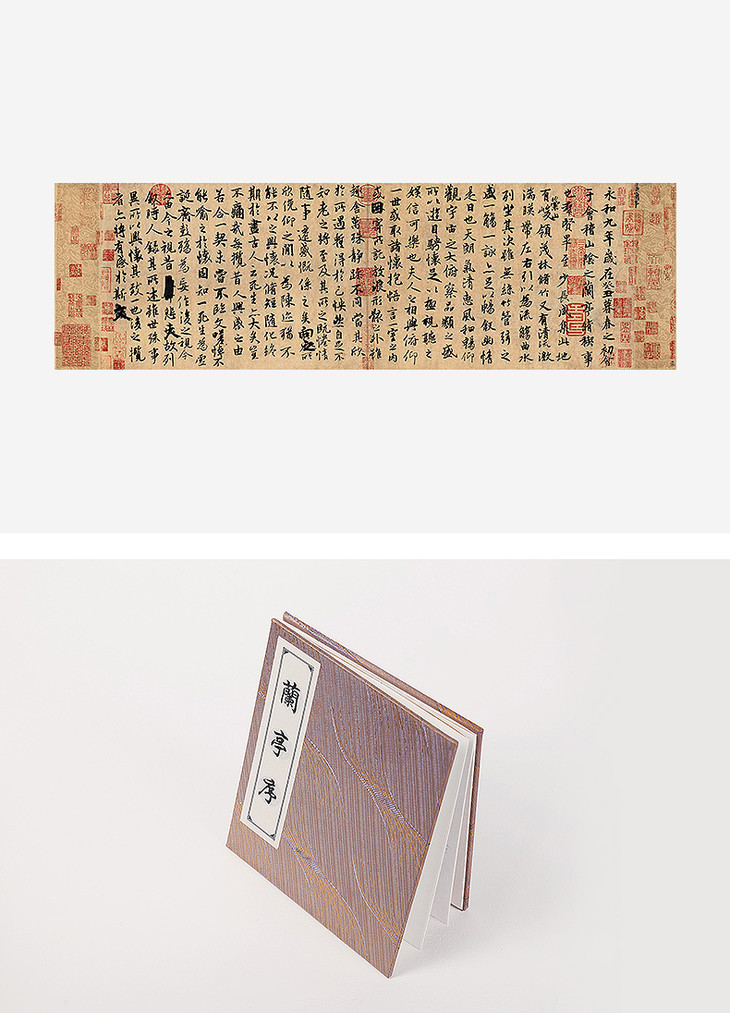 永和九年歲在癸丑暮春之初會
于會稽山陰之蘭亭脩稧事
也羣賢畢至少長咸集此地
有崇山峻領茂林脩竹又有清流激
湍暎帶左右引以為流觴曲水
列坐其次雖無絲竹管弦之
盛一觴一詠亦足以暢叙幽情
是日也天朗氣清惠風和暢仰
觀宇宙之大俯察品類之盛
所以遊目騁懷足以極視聽之
娛信可樂也夫人之相與俯仰
一世或取諸懷抱悟言一室之內
或因寄所託放浪形骸之外雖
趣舍萬殊靜躁不同當其欣
於所遇暫得於己怏然自足不
知老之將至及其所之既惓情
隨事遷感慨係之矣向之所
欣俛仰之閒以為陳迹猶不
能不以之興懷況脩短隨化終
期於盡古人云死生亦大矣豈
不痛哉每攬昔人興感之由
若合一契未嘗不臨文嗟悼不
能喻之於懷固知一死生為虛
誕齊彭殤為妄作後之視今
亦由今之視昔悲夫故列
敘時人錄其所述雖世殊事
異所以興懷其致一也後之攬
者亦將有感於斯文
蘭亭序